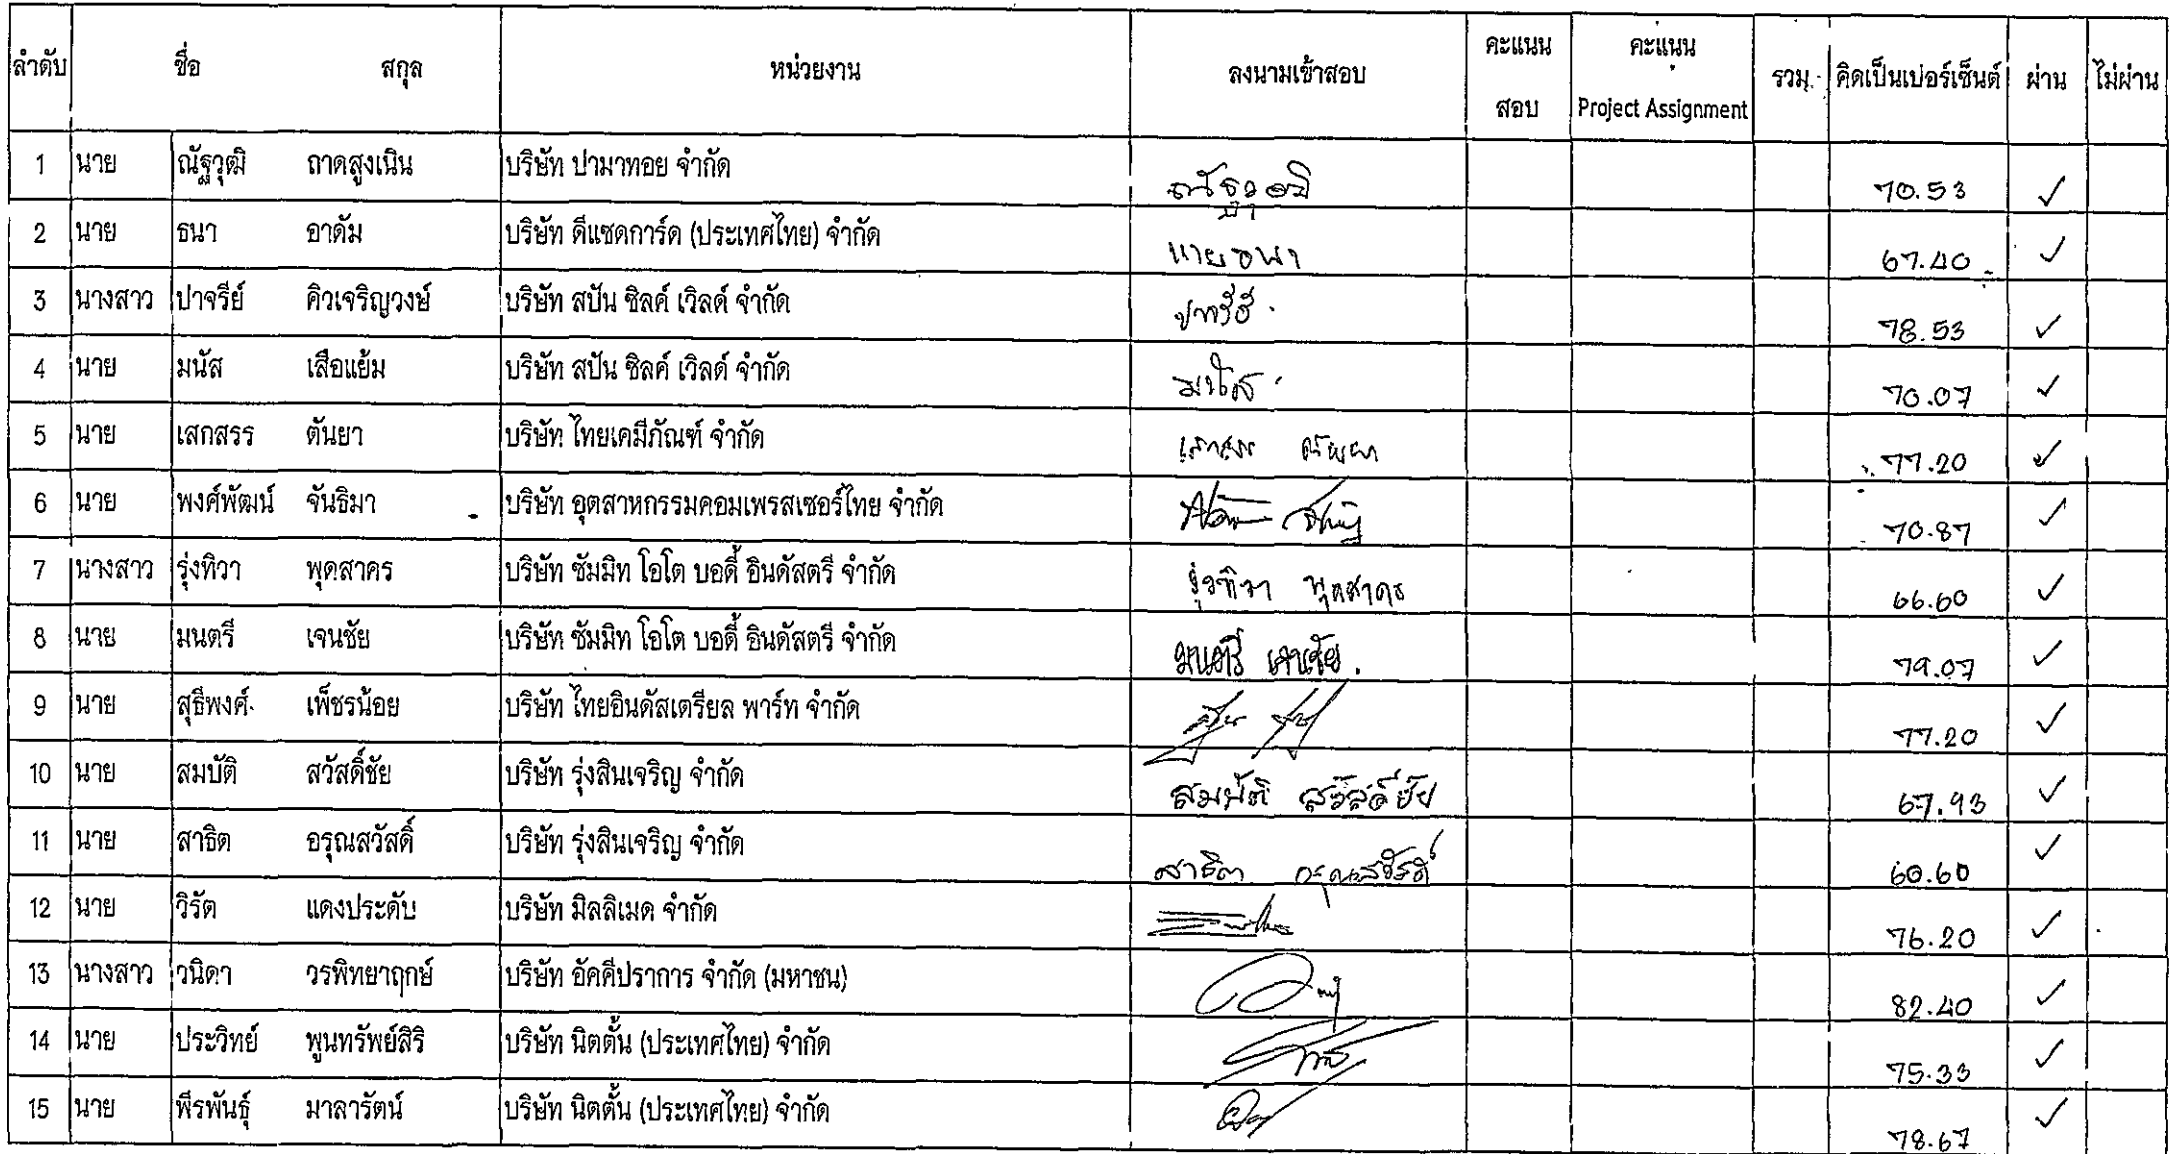 ลำดับ ชื่อ สกุล หน่วยงาน ลงนามเข้าสอบ คะแนน สอบ คะแนน Project Assignment รวม คิดเป็นเปอร์เซ็นต์ ผ่าน ไม่ผ่าน
1 นาย ณัฐวุฒิ ถาดสูงเนิน บริษัท ปามาทอย จำกัด ณัฐวุฒิ 70.53 ✓
2 นาย ธนา อาดัม บริษัท ดีแซดการ์ด (ประเทศไทย) จำกัด นายธนา 67.40 ✓
3 นางสาว ปาจรีย์ คิวเจริญวงษ์ บริษัท สปัน ซิลค์ เวิลด์ จำกัด ปาจรีย์ 78.53 ✓
4 นาย มนัส เสือแย้ม บริษัท สปัน ซิลค์ เวิลด์ จำกัด มนัส 70.07 ✓
5 นาย เสกสรร ตันยา บริษัท ไทยเคมีภัณฑ์ จำกัด เสกสรร ตันยา 77.20 ✓
6 นาย พงศ์พัฒน์ จันธิมา บริษัท อุตสาหกรรมคอมเพรสเซอร์ไทย จำกัด 70.87 ✓
7 นางสาว รุ่งทิวา พุดสาคร บริษัท ซัมมิท โอโต บอดี้ อินดัสตรี จำกัด รุ่งทิวา พุดสาคร 66.60 ✓
8 นาย มนตรี เจนชัย บริษัท ซัมมิท โอโต บอดี้ อินดัสตรี จำกัด มนตรี เจนชัย. 79.07 ✓
9 นาย สุธีพงศ์ เพ็ชรน้อย บริษัท ไทยอินดัสเตรียล พาร์ท จำกัด 77.20 ✓
10 นาย สมบัติ สวัสดิ์ชัย บริษัท รุ่งสินเจริญ จำกัด สมบัติ สวัสดิ์ชัย 67.93 ✓
11 นาย สาธิต อรุณสวัสดิ์ บริษัท รุ่งสินเจริญ จำกัด สาธิต อรุณสวัสดิ์ 60.60 ✓
12 นาย วิรัต แดงประดับ บริษัท มิลลิเมด จำกัด 76.20 ✓
13 นางสาว วนิดา วรพิทยาฤกษ์ บริษัท อัคคีปราการ จำกัด (มหาชน) 82.40 ✓
14 นาย ประวิทย์ พูนทรัพย์สิริ บริษัท นิตตั้น (ประเทศไทย) จำกัด 75.33 ✓
15 นาย พีรพันธุ์ มาลารัตน์ บริษัท นิตตั้น (ประเทศไทย) จำกัด 78.67 ✓